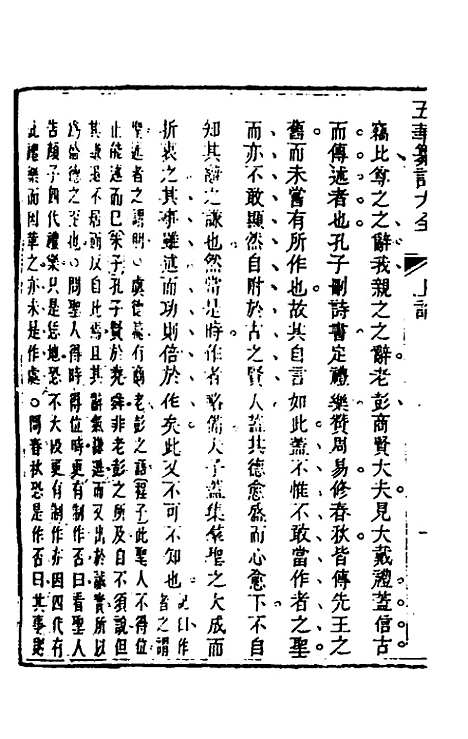 五華纂訂大全
上論
竊比尊之之辭我親之之辭老彭商賢大夫見大戴禮蓋信古
而傳述者也孔子刪詩書定禮樂贊周易修春秋皆傳先王之
舊而未嘗有所作也故其自言如此蓋不惟不敢當作者之聖
而亦不敢顯然自附於古之賢人蓋其德愈盛而心愈下不自
知其辭之謙也然當是時作者略備夫子蓋集羣聖之大成而
折衷之其事雖述而功則倍於作矣此又不可不知也 記曰作者之謂
聖述者之謂明。虞德篇有商老彭之語程子此聖人不得位
止能述而已朱子孔子賢於堯舜非老彭之所及自不須說但
其謙退不居而反自比焉且其辭氣謙遜而又出於誠實所以
為盛德之至也。問聖人得時得位時更有制作否曰看聖人
告顏子四代禮樂只是恁地恐不大段更有制作亦因四代有
此禮樂而因革之亦未是作處。問春秋恐是作否曰其事則